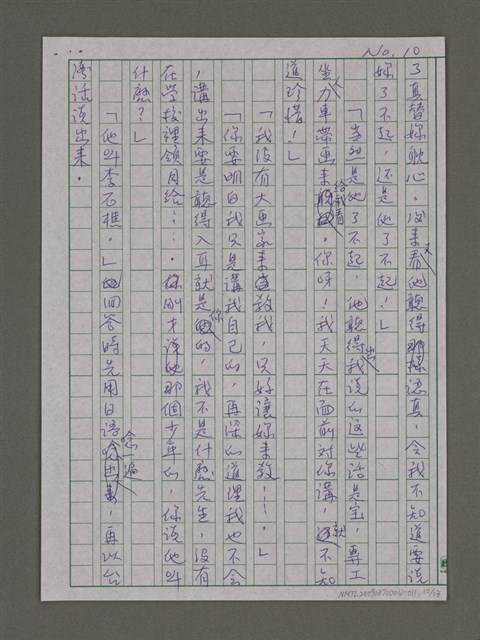 No. 10
了真替妳耽心。後來又看他聽得那樣認真，令我不知道要說
妳了不起，還是他了不起！」
「當然是他了不起，他聽得出我說的這些話是宝，專工
坐力車帶画來給我看。你呀！我天天在面前对你講，就不知
道珍惜！」
「我没有大画家來教我，只好讓妳來教……。」
「你要明白我只是講我自己的，再深的道理我也不会
，講出來要是聽得入耳就是你的，我不是什麼先生，没有
在学校裡領月给……。刚才说的那個少年的，你說他叫
什麼？」
「他叫李石樵。」回答時先用日語念一遍，再以台
湾话说出来。
NMTL20090870004-011, 10/13